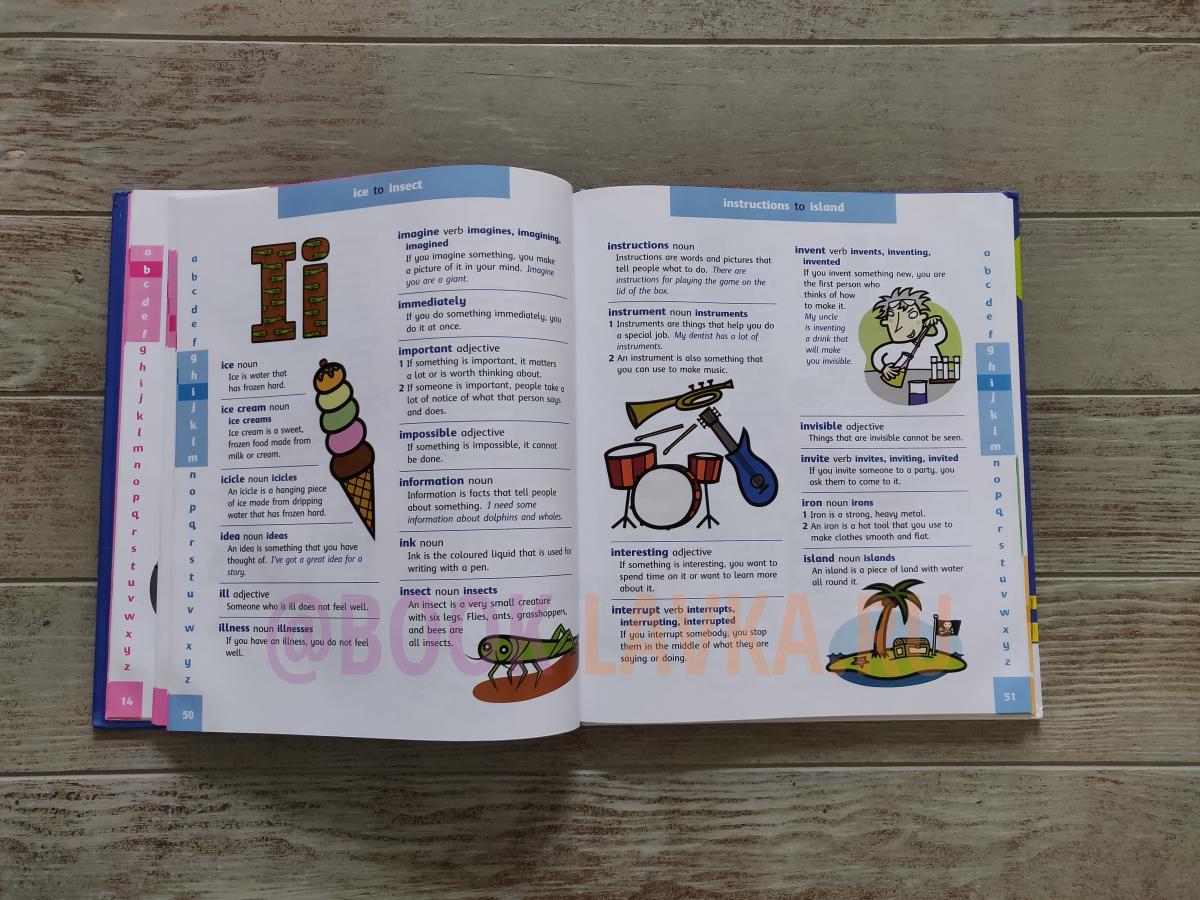 ice to insect
a
b
c
d
e
f
g
h
i
j
k
l
m
n
o
p
q
r
s
t
u
v
w
x
y
z
14
a
b
c
d
e
f
g
h
i
j
k
l
m
n
o
p
q
r
s
t
u
v
w
x
y
z
50
Ii
ice noun
Ice is water that
has frozen hard.
ice cream noun
ice creams
Ice cream is a sweet,
frozen food made from
milk or cream.
icicle noun icicles
An icicle is a hanging piece
of ice made from dripping
water that has frozen hard.
idea noun ideas
An idea is something that you have
thought of. I've got a great idea for a
story.
ill adjective
Someone who is ill does not feel well.
illness noun illnesses
If you have an illness, you do not feel
well.
imagine verb imagines, imagining,
imagined
If you imagine something, you make
a picture of it in your mind. Imagine
you are a giant.
immediately
If you do something immediately, you
do it at once.
important adjective
1 If something is important, it matters
a lot or is worth thinking about.
2 If someone is important, people take a
lot of notice of what that person says
and does.
impossible adjective
If something is impossible, it cannot
be done.
information noun
Information is facts that tell people
about something. I need some
information about dolphins and whales.
ink noun
Ink is the coloured liquid that is used for
writing with a pen.
insect noun insects
An insect is a very small creature
with six legs. Flies, ants, grasshoppers,
and bees are
all insects.
instructions to island
instructions noun
Instructions are words and pictures that
tell people what to do. There are
instructions for playing the game on the
lid of the box.
instrument noun instruments
1 Instruments are things that help you do
a special job. My dentist has a lot of
instruments.
2 An instrument is also something that
you can use to make music.
interesting adjective
If something is interesting, you want to
spend time on it or want to learn more
about it.
interrupt verb interrupts,
interrupting, interrupted
If you interrupt somebody, you stop
them in the middle of what they are
saying or doing.
invent verb invents, inventing,
invented
If you invent something new, you are
the first person who
thinks of how
to make it.
My uncle
is inventing
a drink that
will make
you invisible.
invisible adjective
Things that are invisible cannot be seen.
invite verb invites, inviting, invited
If you invite someone to a party, you
ask them to come to it.
iron noun irons
1 Iron is a strong, heavy metal.
2 An iron is a hot tool that you use to
make clothes smooth and flat.
island noun islands
An island is a piece of land with water
all round it.
a
b
c
d
e
f
g
h
i
j
k
l
m
n
o
p
q
r
s
t
u
v
w
x
y
z
51
@BOOK.LAVKA.RU